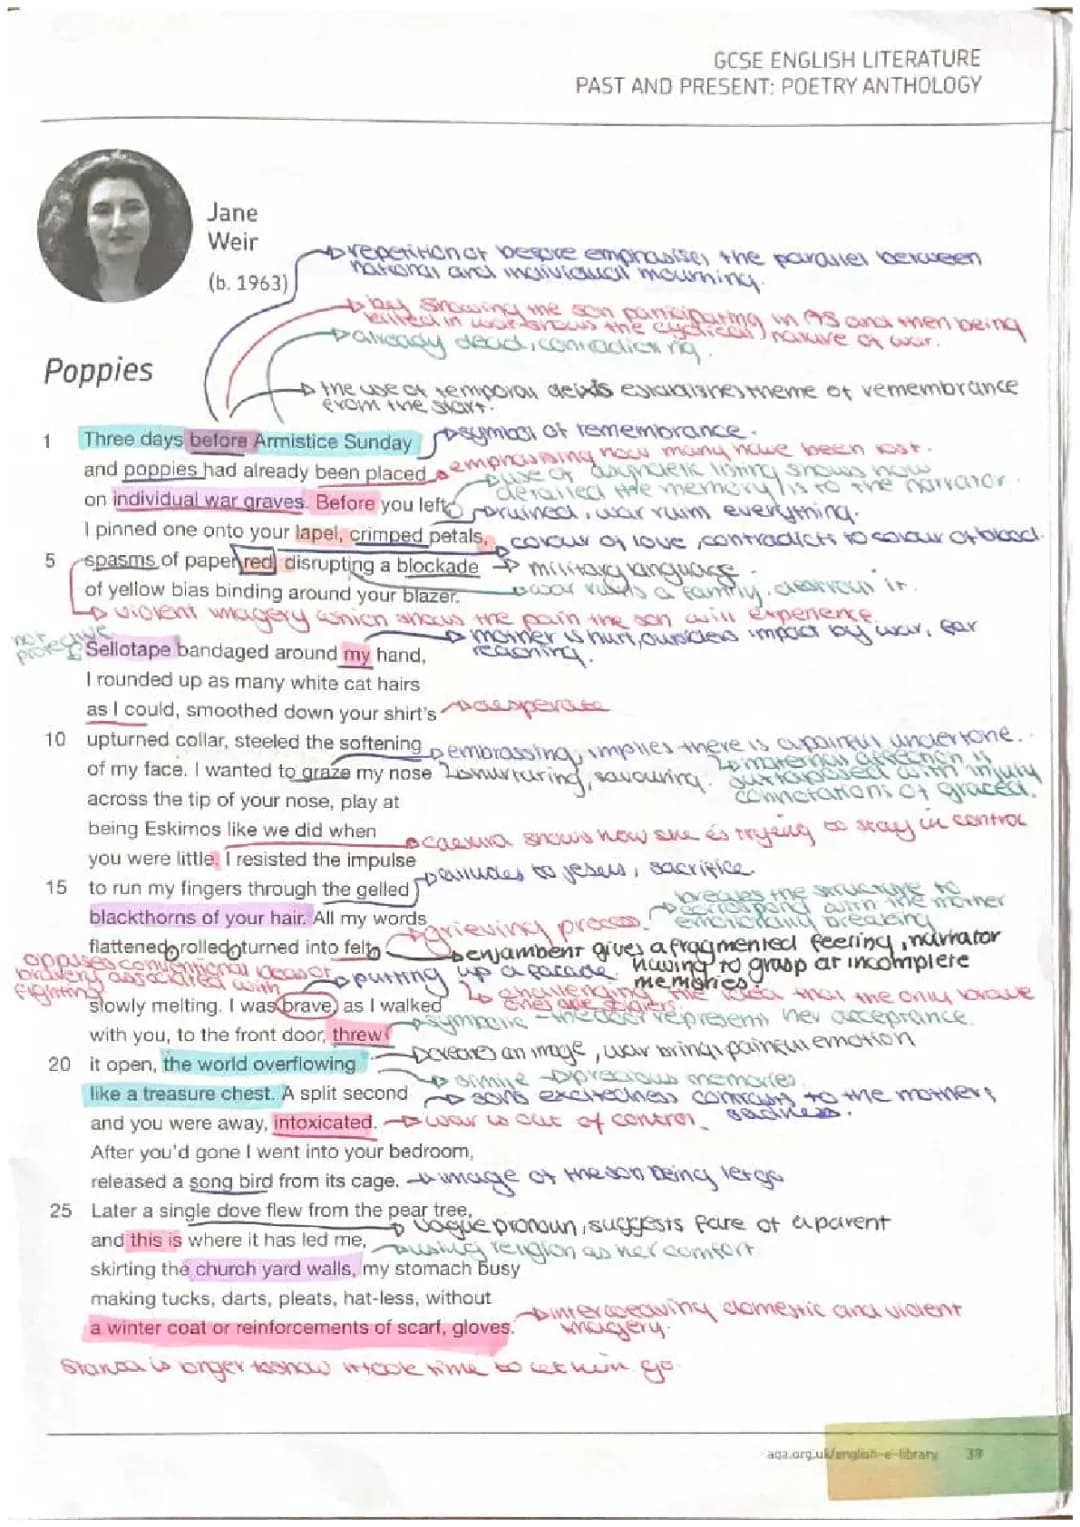 GCSE ENGLISH LITERATURE
PAST AND PRESENT: POETRY ANTHOLOGY
Jane
Weir
(b. 1963)
repetition of before emphasises the parallel between
national and individual mourning.
by showing the son participating in AS and then being
killed in war shows the cyclical nature of war.
already dead, contradicting.
Poppies
the use of temporal deixis establishes theme of remembrance
from the start.
1 Three days before Armistice Sunday
symbol of remembrance.
and poppies had already been placed
emphasising how many have been lost.
use of asyndetic listing shows how
detailed the memory is to the narrator.
on individual war graves. Before you left,
ruined, war ruins everything.
I pinned one onto your lapel, crimped petals,
colour of love, contradicts to colour of blood.
5 spasms of paper red, disrupting a blockade
military language.
of yellow bias binding around your blazer.
war ruins a family, destroys it.
violent imagery which shows the pain the son will experience.
not protective
mother is hurt, outsiders impact by war, far
reaching.
Sellotape bandaged around my hand,
I rounded up as many white cat hairs
as I could, smoothed down your shirt's
desperate
10 upturned collar, steeled the softening
embrassing, implies there is a painful undertone.
of my face. I wanted to graze my nose
nurturing, savouring.
maternal affection is
juxtaposed with injury
connotations of grazed.
across the tip of your nose, play at
being Eskimos like we did when
caesura shows how she is trying to stay in control
you were little. I resisted the impulse
alludes to jesus, sacrifice.
15 to run my fingers through the gelled
breaks the structure to
correspond with the mother
emotionally breaking
blackthorns of your hair. All my words
grieving process.
flattened, rolled, turned into felt,
enjambent gives a fragmented feeling, narrator
having to grasp at incomplete
memories.
opposes conventional ideas of
bravery associated with
fighting
putting up a facade.
slowly melting. I was brave, as I walked
challenging the idea that the only brave
ones are soldiers.
with you, to the front door, threw
symbolic - the door represents her acceprance.
creates an image, war brings painful emotion
20 it open, the world overflowing
simile precious memories.
like a treasure chest. A split second
sons excitedness contrasts to the mothers
sadness.
and you were away, intoxicated.
war is out of control.
After you'd gone I went into your bedroom,
released a song bird from its cage.
image of the son being let go
25 Later a single dove flew from the pear tree,
vague pronoun, suggests fare of a parent
and this is where it has led me,
using religion as her comfort.
skirting the church yard walls, my stomach busy
making tucks, darts, pleats, hat-less, without
interweaving domestic and violent
imagery.
a winter coat or reinforcements of scarf, gloves.
Stanza is longer to show it took time to let him go.
aqa.org.uk/english-e-library 39